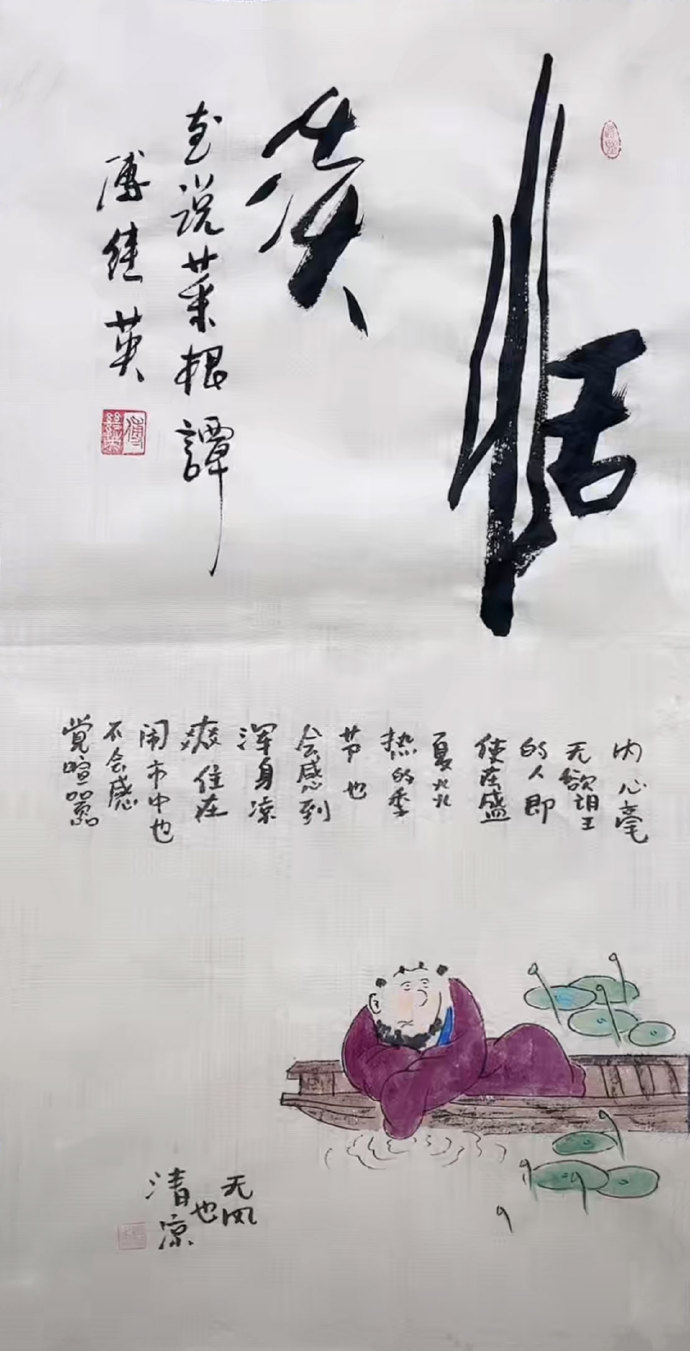 恬淡
画说菜根譚
傅英
内心毫
无欲望
的人即
使在盛
夏炎
热的季
节也
会感到
浑身凉
爽住在
闹市中也
不会感
觉喧嚣
无风
也
清凉